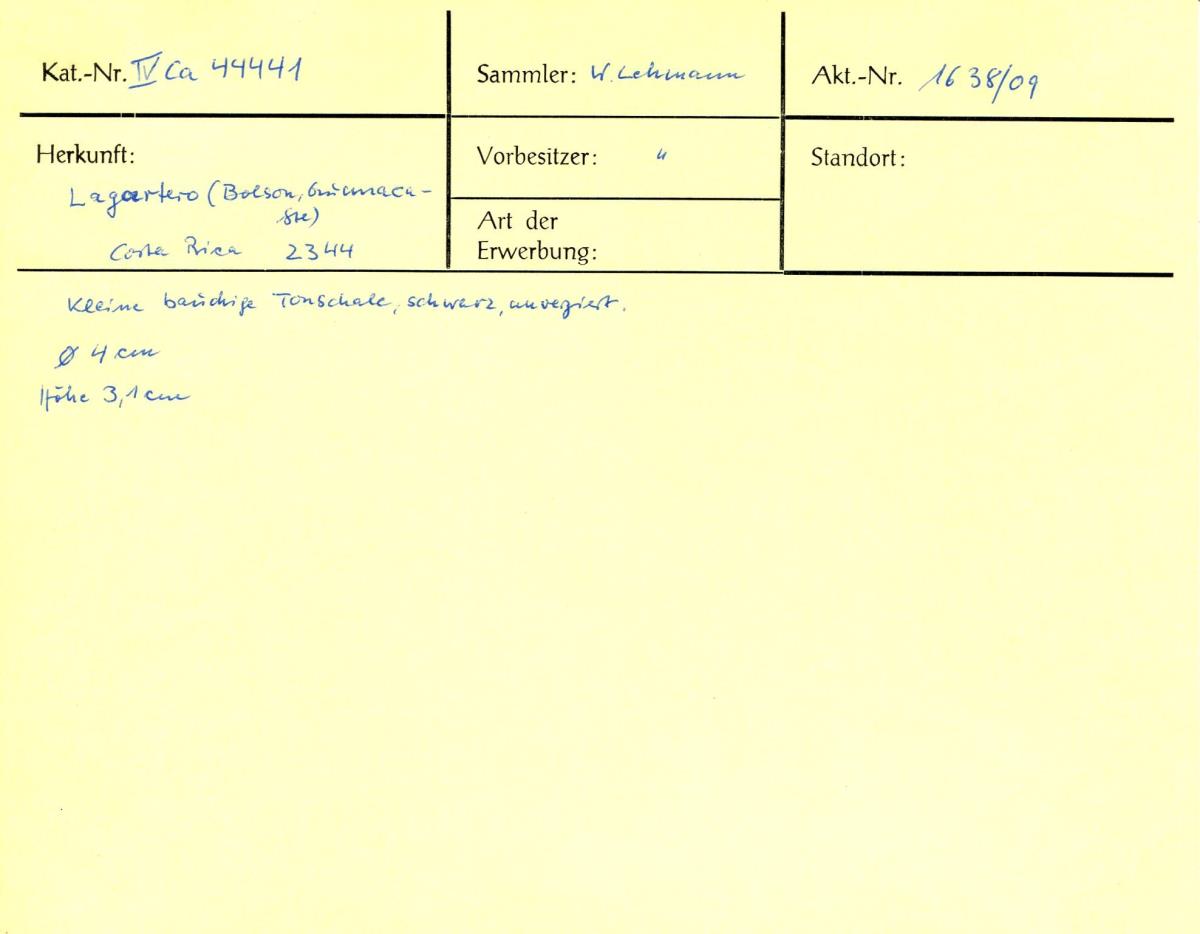 Kat.-Nr. IV Ca 44441
Sammler: W. Lehmann
Akt.-Nr. 1638/09
Herkunft:
Lagartero (Bolson, Guanaca-
ste)
Costa Rica 2344
Vorbesitzer: "
Art der
Erwerbung:
Standort:
Kleine bauchige Tonschale, schwarz, unverziert.
Ø 4 cm
Höhe 3,1 cm